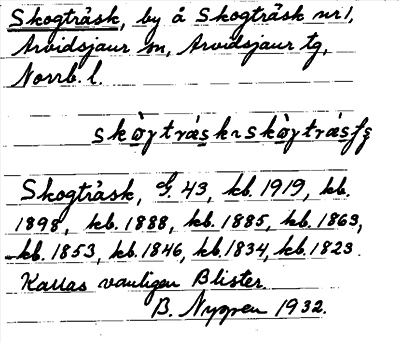 Skogträsk, by å Skogträsk nr 1,
Arvidsjaur sn, Arvidsjaur tg,
Norrb. l.
skògtràsk ~ skògtràsfs
Skogträsk, G. 43, kb. 1919, kb.
1898, kb. 1888, kb. 1885, kb. 1863,
kb. 1853, kb. 1846, kb. 1834, kb. 1823.
Kallas vanligen Blister.
B. Nygren 1932.